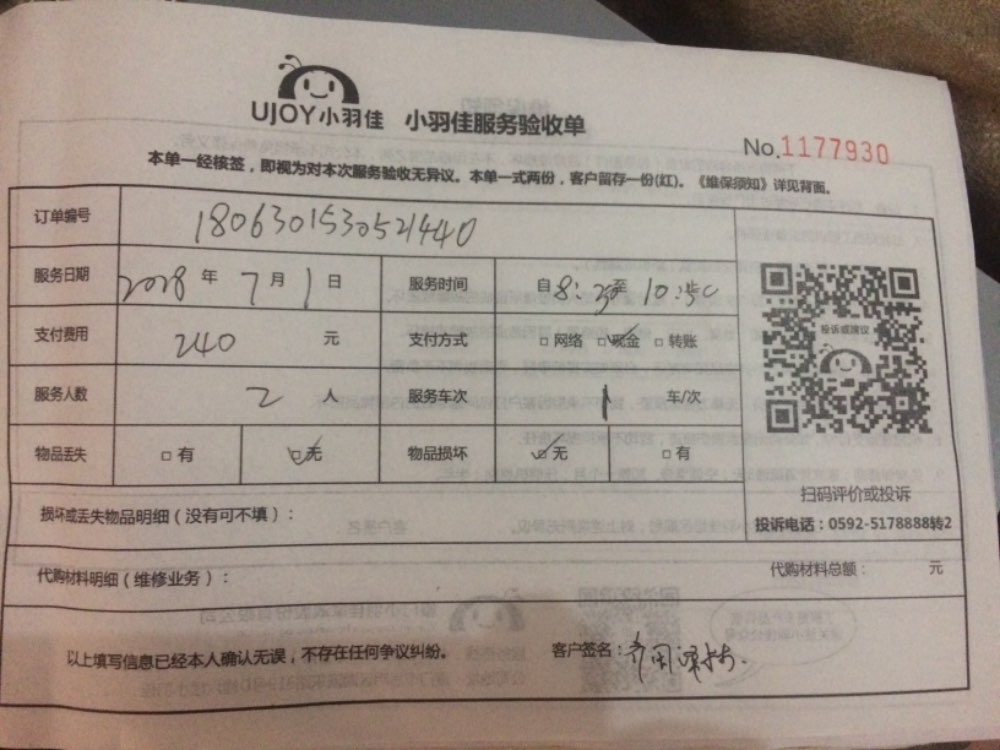 UJOY小羽佳 小羽佳服务验收单
No.1177930
本单一经核签，即视为对本次服务验收无异议。本单一式两份，客户留存一份(红)。《维保须知》详见背面。
订单编号 1806301530521440
服务日期 2018 年 7 月 1 日 服务时间 自 8:30 至 10:50
支付费用 240 元 支付方式 □网络 □现金 □转账
服务人数 2 人 服务车次 1 车/次
物品丢失 □有 □无 物品损坏 □无 □有
投诉或建议
扫码评价或投诉
投诉电话：0592-5178888转2
损坏或丢失物品明细（没有可不填）：
代购材料明细（维修业务）： 代购材料总额： 元
以上填写信息已经本人确认无误，不存在任何争议纠纷。 客户签名：